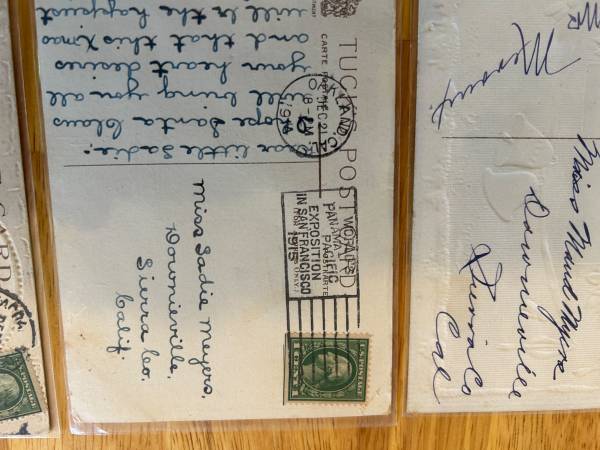 CARD
TUCK'S POST CARD
CARTE POSTALE
Dear little Sadie;
Hope Santa Claus
will bring you all
your heart desires
and that this Xmas
will be the happiest
DEC 21
WORLD'S
PANAMA
PACIFIC
EXPOSITION
IN SAN FRANCISCO
1915
Miss Sadie Meyers,
Downieville,
Sierra Co.
Calif.
U.S. POSTAGE
Miss Maud
Downieville
Sierra Co
Cal